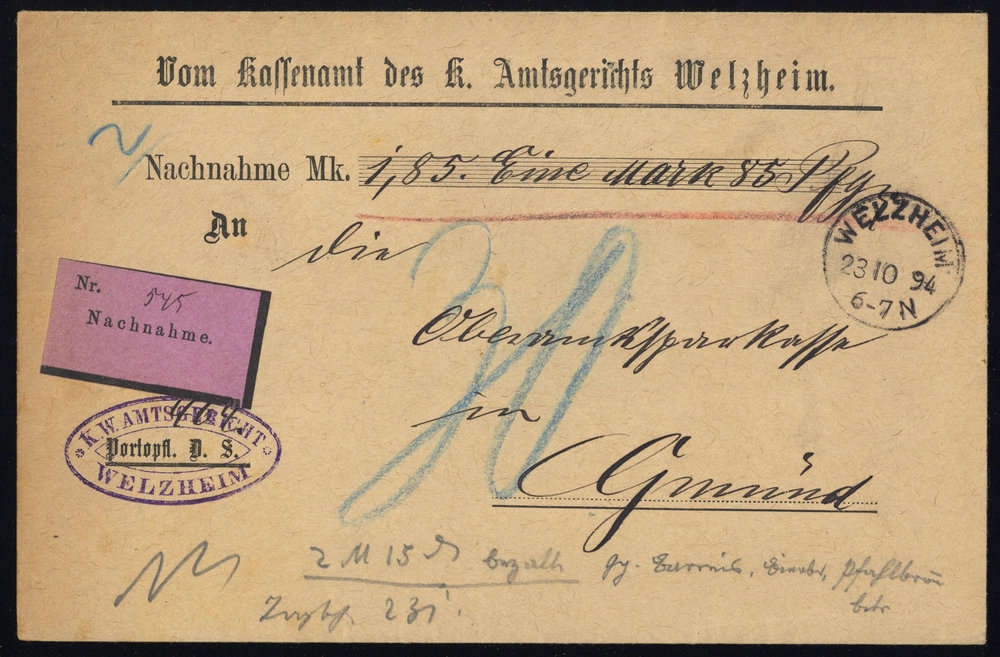 Vom Kassenamt des K. Amtsgerichts Welzheim.
Nachnahme Mk. 1,85. Eine Mark 85 Pfg
An
die
WELZHEIM
23 10 94
6-7N
Nr. 545
Nachnahme.
Oberamtssparkasse
464.
K.W. AMTSGERICHT
Portopfl. D. S.
WELZHEIM
in
Gmünd
30
2 M 15 bezahlt
Pfahlbronn
betr